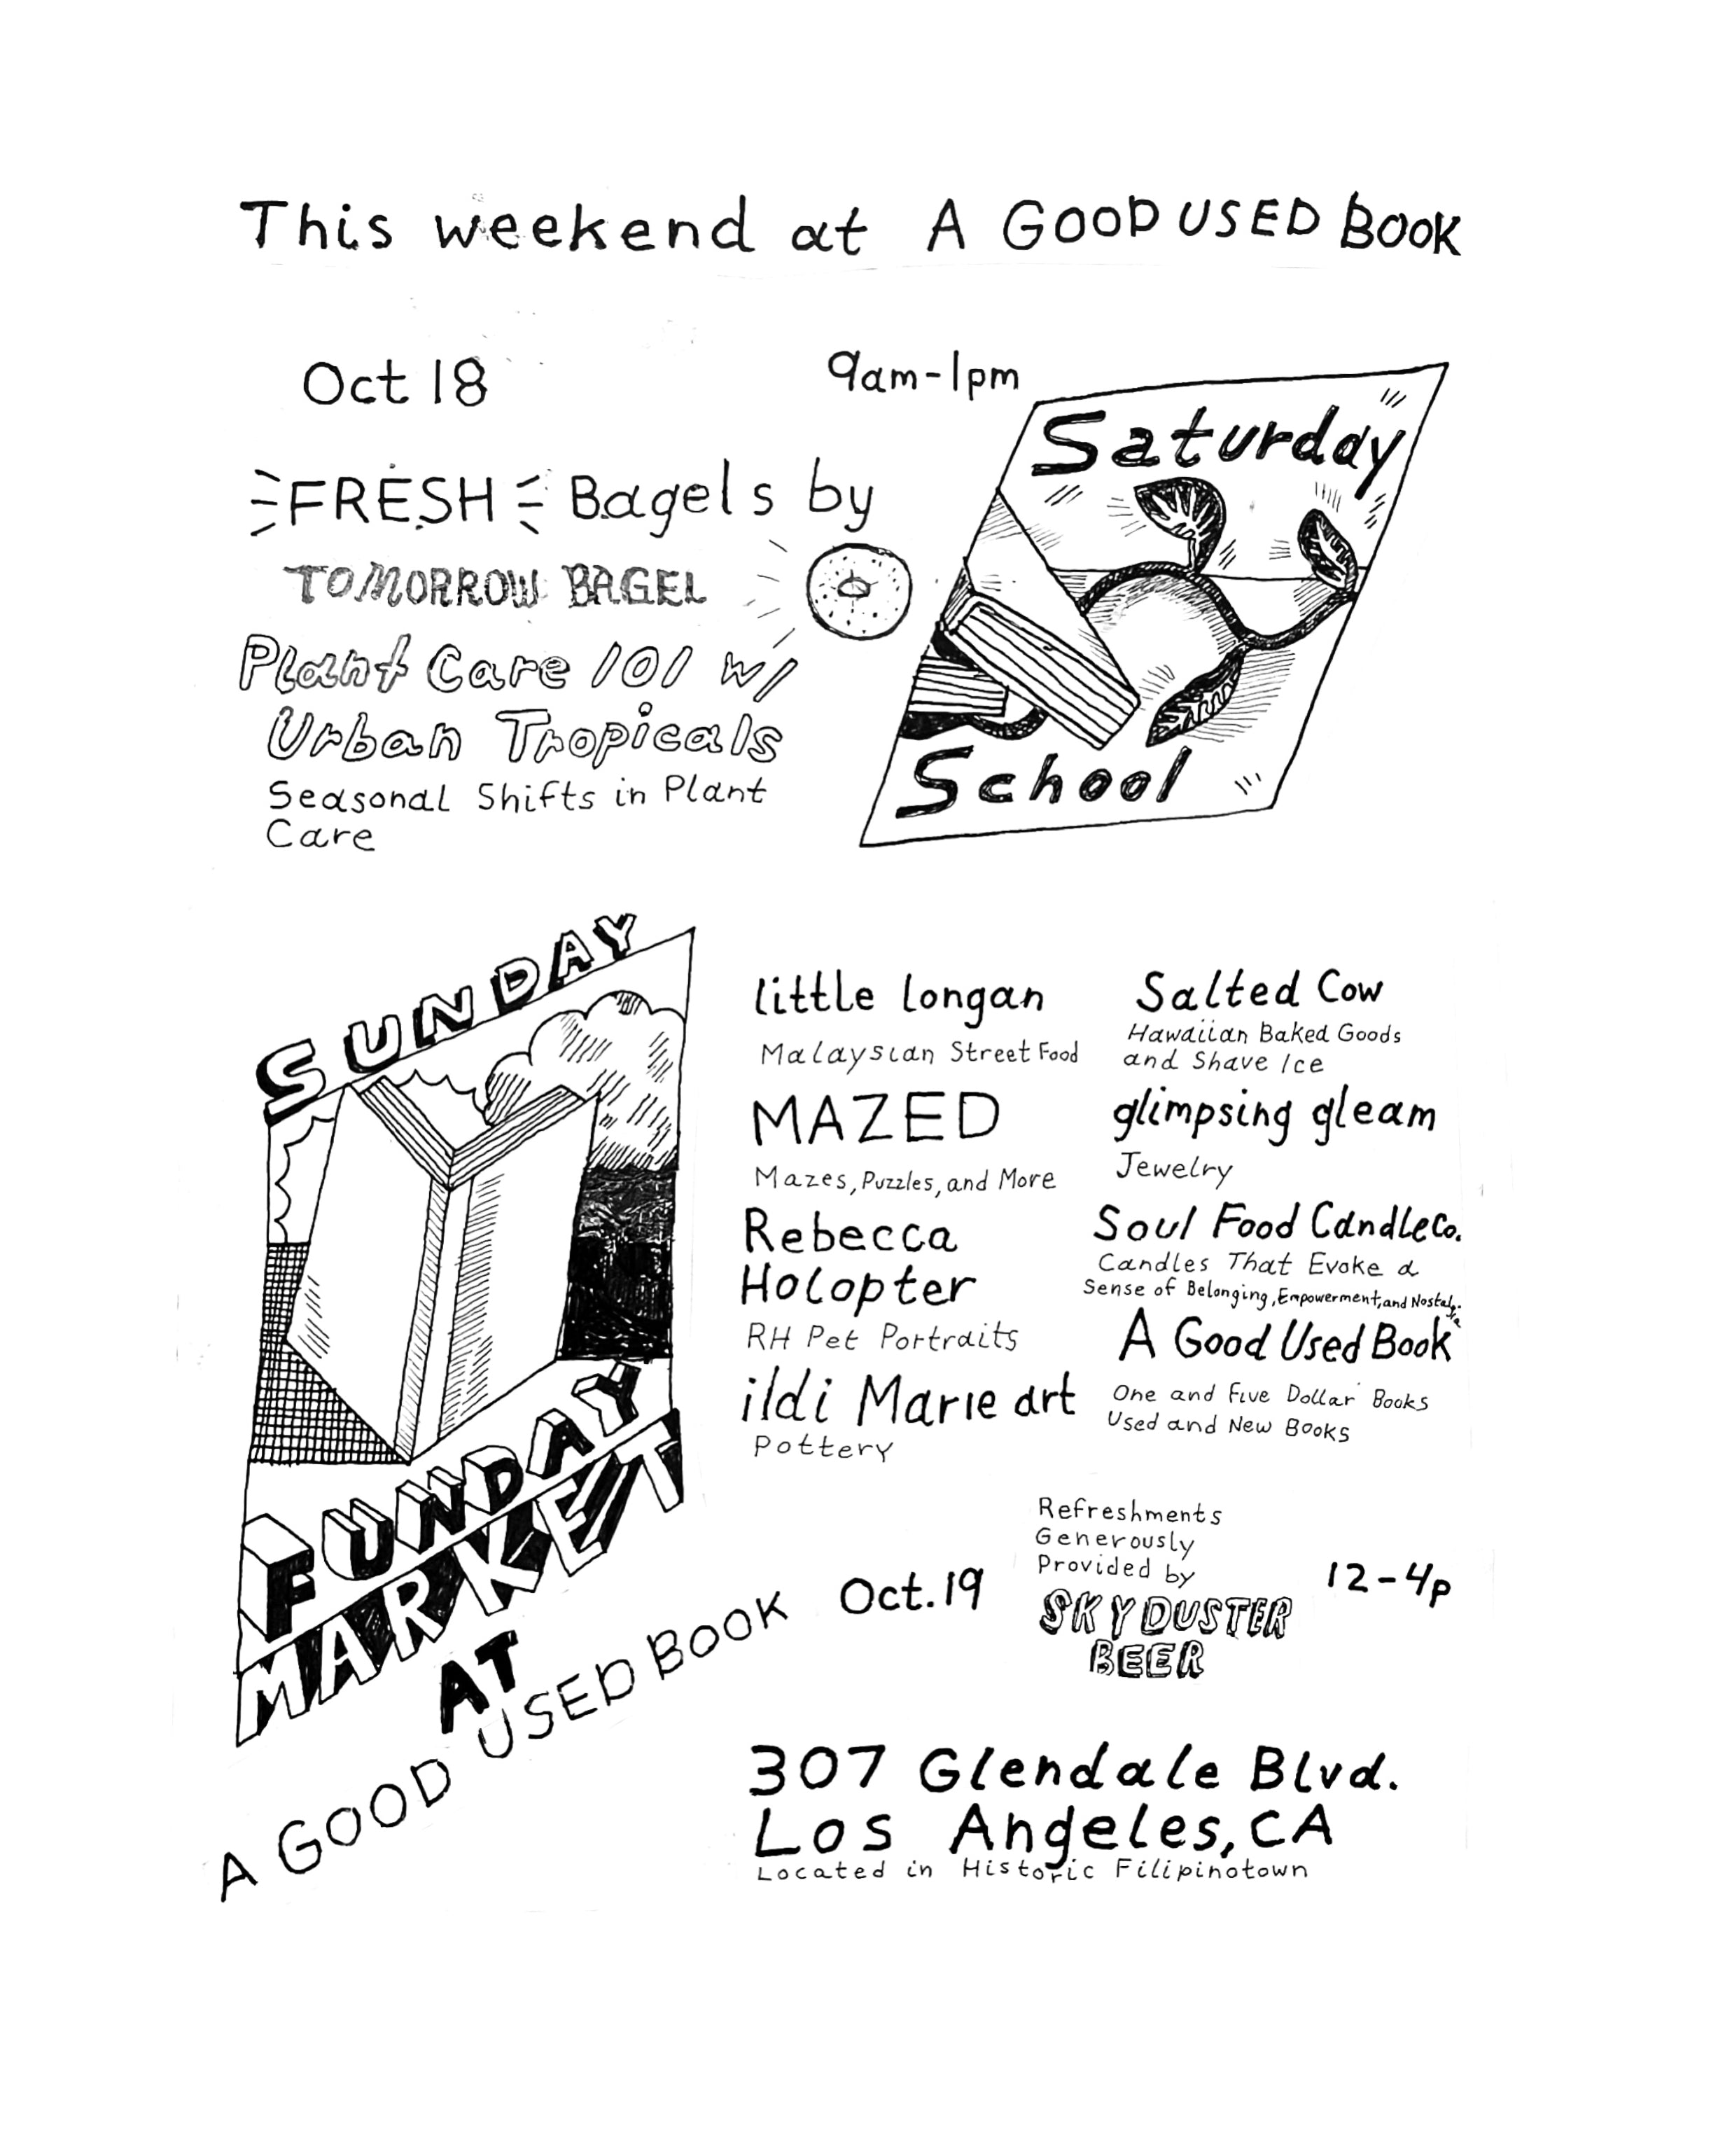 This weekend at A GOOD USED BOOK
Oct 18
9am-1pm
FRESH Bagels by
TOMORROW BAGEL
Plant Care 101 w/
Urban Tropicals
Seasonal Shifts in Plant
Care
Saturday
School
SUNDAY
FUNDAY
MARKET
AT
A GOOD USED BOOK
little longan
Malaysian Street Food
MAZED
Mazes, Puzzles, and More
Rebecca
Holopter
RH Pet Portraits
ildi Marie art
Pottery
Salted Cow
Hawaiian Baked Goods
and Shave Ice
glimpsing gleam
Jewelry
Soul Food Candle Co.
Candles That Evoke a
Sense of Belonging, Empowerment, and Nostalgia.
A Good Used Book
One and Five Dollar Books
Used and New Books
Oct. 19
Refreshments
Generously
Provided by
SKYDUSTER
BEER
12-4p
307 Glendale Blvd.
Los Angeles, CA
Located in Historic Filipinotown